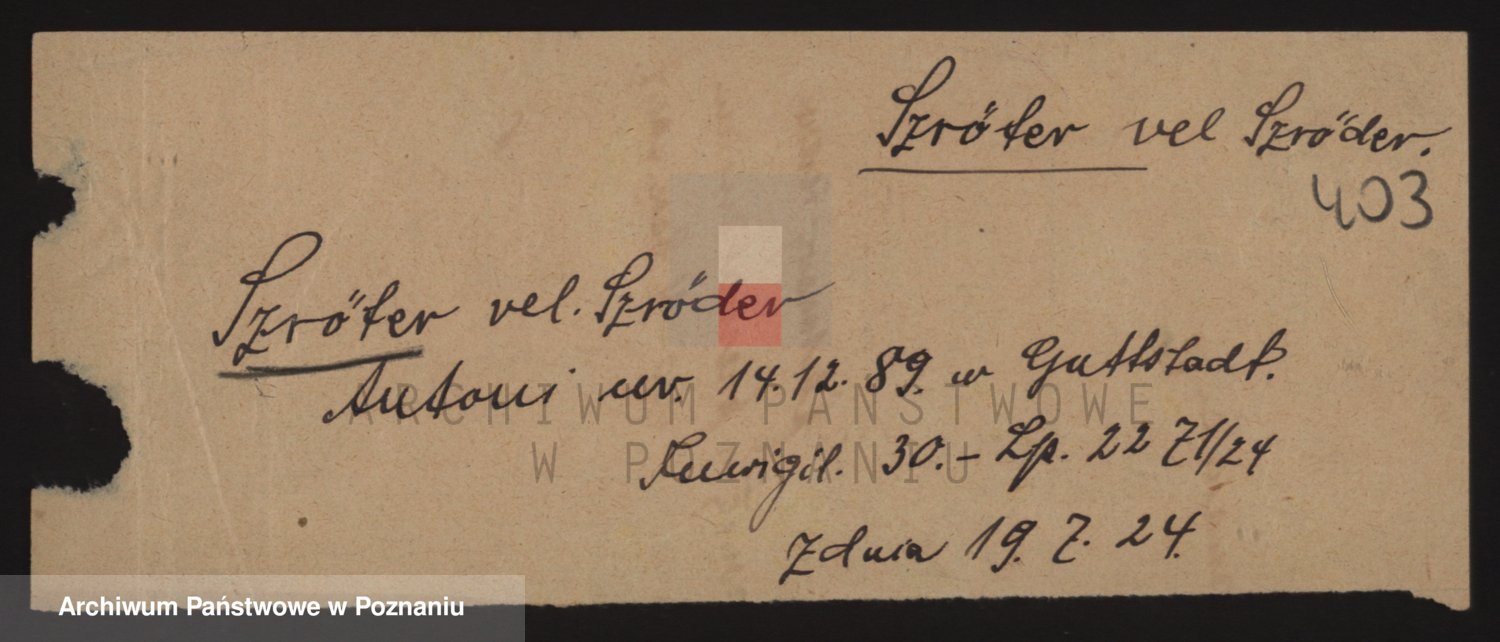 Szröter vel Szröder.
403
Szröter vel. Szröder
Antoni ur. 14.12.89. w Guttstadt.
Inwigil. 30.- Lp. 2271/24
Z dnia 19.7.24.
ARCHIWUM PAŃSTWOWE
W POZNANIU
Archiwum Państwowe w Poznaniu